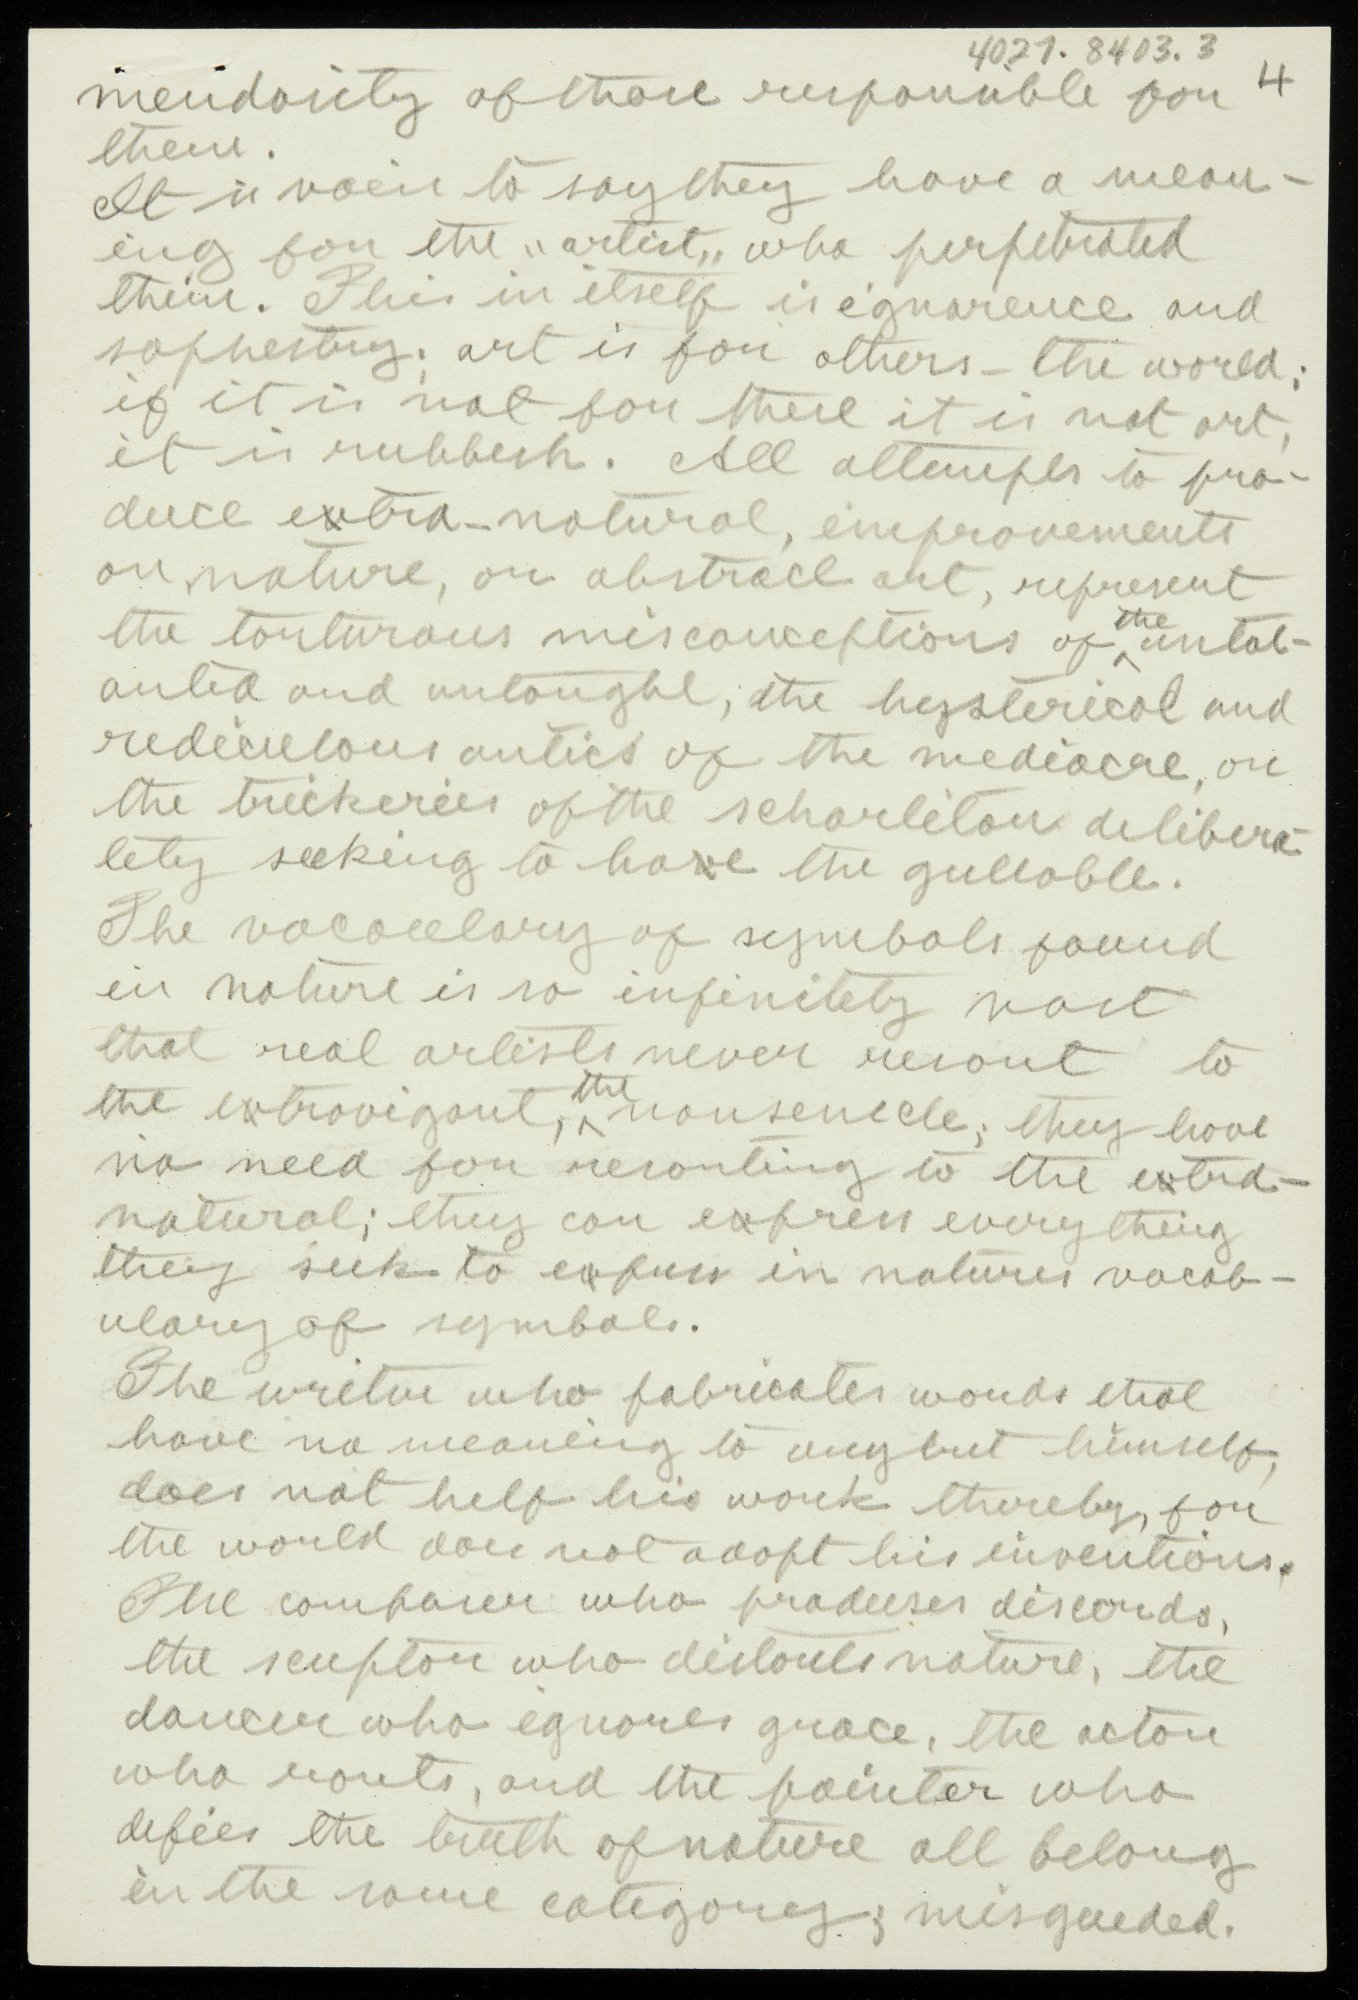 4027.8403.3
4
mendasity of those responsible for
them.
It is vain to say they have a mean-
ing for the "artist" who perpetrated
them. This in itself is ignorence and
sophestry; art is for others - the world;
if it is not for these it is not art,
it is rubbesh. All attempts to pro-
duce extra-natural, improvements
on nature, or abstract art, represent
the torturous misconceptions of the untal-
anted and untaught, the hysterical and
rediculous antics of the mediocre, or
the trickeries of the scharliton delibera-
tely seeking to hoxe the gullable.
The vocabulary of symbols found
in nature is so infinitely vast
that real artists never resort to
the extravigant, the nonsenecle; they have
no need for resorting to the extra-
natural; they can express everything
they seek to express in natures vocab-
ulary of symbols.
The writer who fabricates words that
have no meaning to any but himself,
does not help his work thereby, for
the world does not adopt his inventions.
The composer who produses discords,
the sculptor who distorts nature, the
dancer who ignores grace, the actor
who rants, and the painter who
defies the truth of nature all belong
in the same category; misguided.